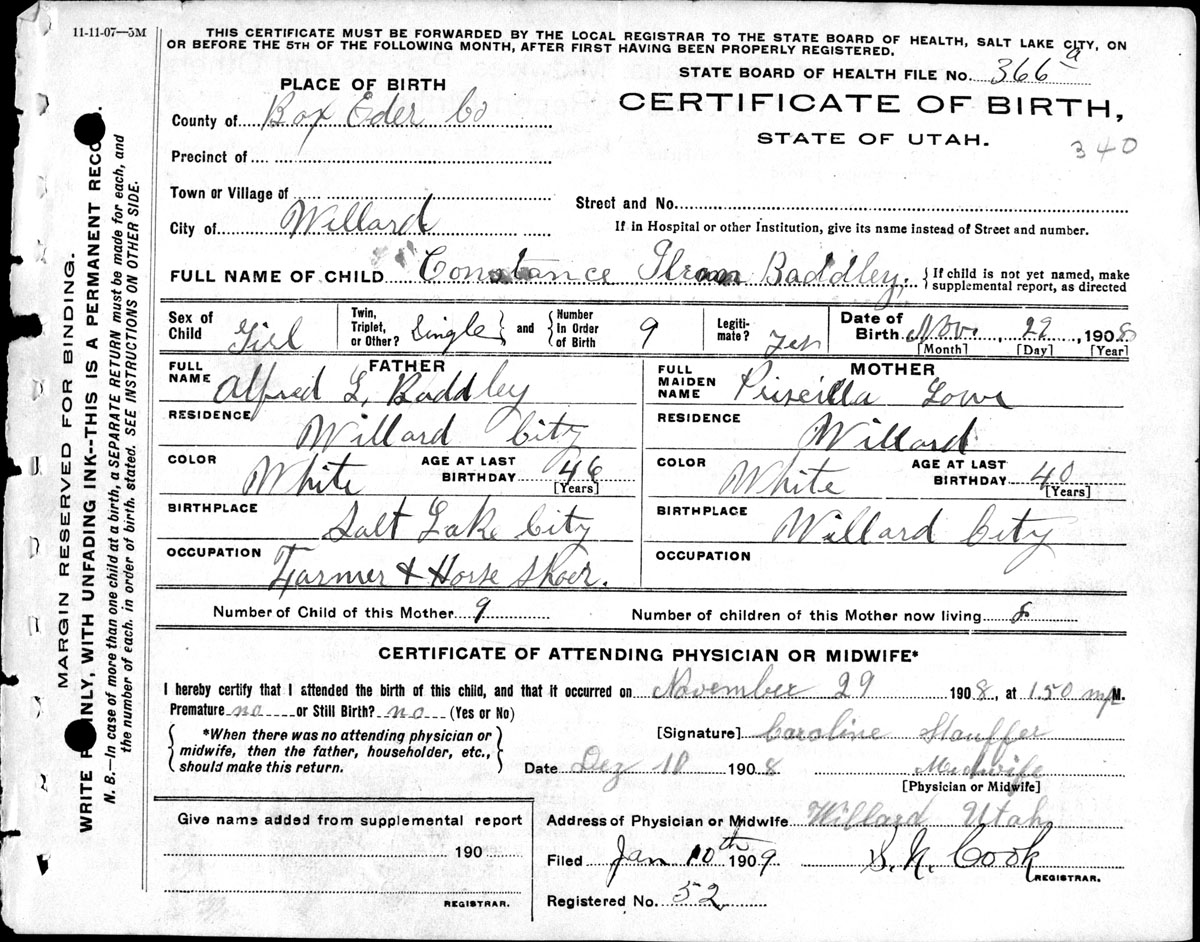 11-11-07—5M
THIS CERTIFICATE MUST BE FORWARDED BY THE LOCAL REGISTRAR TO THE STATE BOARD OF HEALTH, SALT LAKE CITY, ON
OR BEFORE THE 5TH OF THE FOLLOWING MONTH, AFTER FIRST HAVING BEEN PROPERLY REGISTERED.
STATE BOARD OF HEALTH FILE No. 366 a
PLACE OF BIRTH
CERTIFICATE OF BIRTH,
STATE OF UTAH.
340
County of Box Eder Co
Precinct of
Town or Village of
Street and No.
City of Willard
If in Hospital or other Institution, give its name instead of Street and number.
FULL NAME OF CHILD Constance Baddley,
{ If child is not yet named, make
supplemental report, as directed
Sex of Child Girl
Twin, Triplet, or Other? Single } and { Number In Order of Birth 9
Legiti-mate? Yes
Date of Birth Nov. 29, 1908
[Month] [Day] [Year]
FATHER
FULL NAME Alfred L. Baddley
RESIDENCE Willard City
COLOR White AGE AT LAST BIRTHDAY 46 [Years]
BIRTHPLACE Salt Lake City
OCCUPATION Farmer & Horse Shoer.
MOTHER
FULL MAIDEN NAME Priscilla Lowe
RESIDENCE Willard
COLOR White AGE AT LAST BIRTHDAY 40 [Years]
BIRTHPLACE Willard City
OCCUPATION
Number of Child of this Mother 9 Number of children of this Mother now living 8
CERTIFICATE OF ATTENDING PHYSICIAN OR MIDWIFE*
I hereby certify that I attended the birth of this child, and that it occurred on November 29 1908, at 1.50 M.
Premature no or Still Birth? no (Yes or No)
{ *When there was no attending physician or
midwife, then the father, householder, etc.,
should make this return. }
[Signature] Caroline Stauffer
Date Dez 10 1908 Midwife
[Physician or Midwife]
Give name added from supplemental report
190
REGISTRAR.
Address of Physician or Midwife Willard Utah
Filed Jan 10th 1909 S. N. Cook
REGISTRAR.
Registered No. 52
MARGIN RESERVED FOR BINDING.
WRITE P INLY, WITH UNFADING INK--THIS IS A PERMANENT RECO .
N. B.—In case of more than one child at a birth, a SEPARATE RETURN must be made for each, and
the number of each, in order of birth, stated. SEE INSTRUCTIONS ON OTHER SIDE.